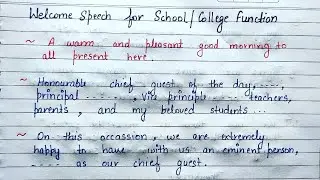 Welcome Speech for School/College Function
~ A warm and pleasant good morning to
all present here...
~ Honourable chief guest of the day, ----,
principal ......, vice principle ...... teachers,
parents, and my beloved students...
~ On this occassion, we are extremely
happy to have with us an eminent person,
.... as our chief guest.